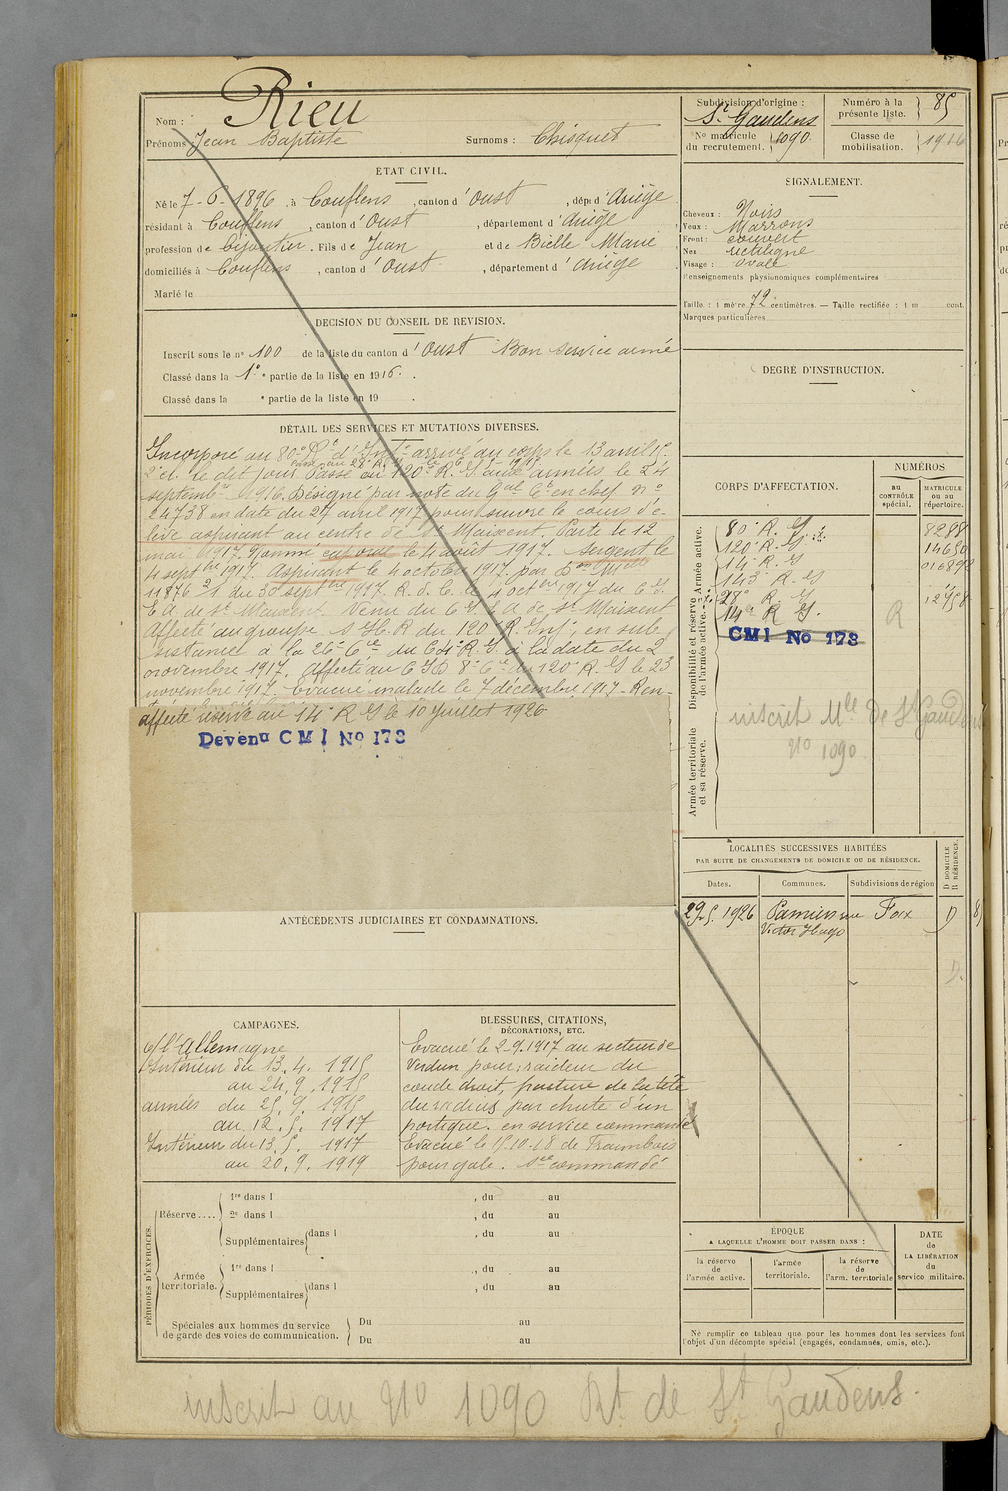 Nom : Rieu
Prénoms : Jean Baptiste Surnoms : Chisquet
ÉTAT CIVIL.
Né le 7-6-1896, à Couflens, canton d'Oust, dépt d'Ariège
résidant à Couflens, canton d'Oust, département d'Ariège
profession de bijoutier. Fils de Jean et de Bielle Marie
domiciliés à Couflens, canton d'Oust, département d'Ariège
Marié le
DÉCISION DU CONSEIL DE RÉVISION.
Inscrit sous le n° 100 de la liste du canton d'Oust Bon service armé
Classé dans la 1e partie de la liste en 1916.
Classé dans la e partie de la liste en 19 .
DÉTAIL DES SERVICES ET MUTATIONS DIVERSES.
Incorporé au 80e Rt d'Inftie arrivé au corps le 13 avril 15.
2e cl. le dit jour Passé au 120e R. I. aux armées le 24
septembre 1916. Désigné par note du Gal Ct en chef no
24738 en date du 27 avril 1917 pour suivre le cours d'é-
lève aspirant au centre de St Maixent. Parti le 12
mai 1917. Nommé caporal le 4 août 1917. Sergent le
4 septbre 1917. Aspirant le 4 octobre 1917 par Don Mlle
11876 21 du 30 septbre 1917. R. d. C. le 4 octbre 1917 du C. I.
E. A. de St Maixent. Venu du C. I. E. A. de St Maixent
Affecté au groupe S. H. R. du 120e R. Inf. en sub-
sistance à la 26e Cie du 64e R. I. à la date du 2
novembre 1917. Affecté au C I D 8e Cie du 120e R. I. le 23
novembre 1917. Evacué malade le 7 décembre 1917. Ren-
affecté réserve au 14e R I le 10 Juillet 1926
Devenu CMI No 173
ANTÉCÉDENTS JUDICIAIRES ET CONDAMNATIONS.
CAMPAGNES.
c/ l'Allemagne
Intérieur du 13. 4. 1915
au 24. 9. 1915
armées du 25. 9. 1915
au 12. 5. 1917
Intérieur du 13. 5. 1917
au 20. 9. 1919
BLESSURES, CITATIONS,
DÉCORATIONS, ETC.
Evacué le 2-9-1917 au secteur de
Verdun pour : raideur du
coude droit, fracture de la tête
du radius par chute d'un
portique. en service commandé
Evacué le 15-10-18 de Frambois
pour gale. Sce commandé
PÉRIODES D'EXERCICES.
Réserve.... 1re dans l , du au
2e dans l , du au
Supplémentaires dans l , du au
Armée territoriale. 1re dans l , du au
Supplémentaires dans l , du au
Spéciales aux hommes du service
de garde des voies de communication.
Du au
Du au
Subdivision d'origine :
St Gaudens
No matricule du recrutement. 1090
Numéro à la présente liste. 85
Classe de mobilisation. 1916
SIGNALEMENT.
Cheveux : Noirs
Yeux : Marrons
Front : couvert
Nez rectiligne
Visage : ovale
Renseignements physionomiques complémentaires
Taille : 1 mètre 72 centimètres. — Taille rectifiée : 1 m cent.
Marques particulières
DEGRÉ D'INSTRUCTION.
CORPS D'AFFECTATION.
NUMÉROS
au CONTRÔLE spécial.
MATRICULE ou au répertoire.
Armée active.
Disponibilité et réserve de l'armée active.
Armée territoriale et sa réserve.
80e R. I. 8288
120e R. I.
14e R. I
143e R. I
28e R. I.
14e R I.
CMI No 173
R
inscrit Mle de St Gaudens
No 1090
LOCALITÉS SUCCESSIVES HABITÉES
PAR SUITE DE CHANGEMENTS DE DOMICILE OU DE RÉSIDENCE.
Dates. Communes. Subdivisions de région
D DOMICILE R RÉSIDENCE.
29. 5. 1926 Pamiers rue Foix D
Victor Hugo
D.
ÉPOQUE
A LAQUELLE L'HOMME DOIT PASSER DANS :
la réserve de l'armée active.
l'armée territoriale.
la réserve de l'arm. territoriale
DATE de LA LIBÉRATION du service militaire.
Ne remplir ce tableau que pour les hommes dont les services font
l'objet d'un décompte spécial (engagés, condamnés, omis, etc.).
inscrit au No 1090 Rt de St Gaudens.